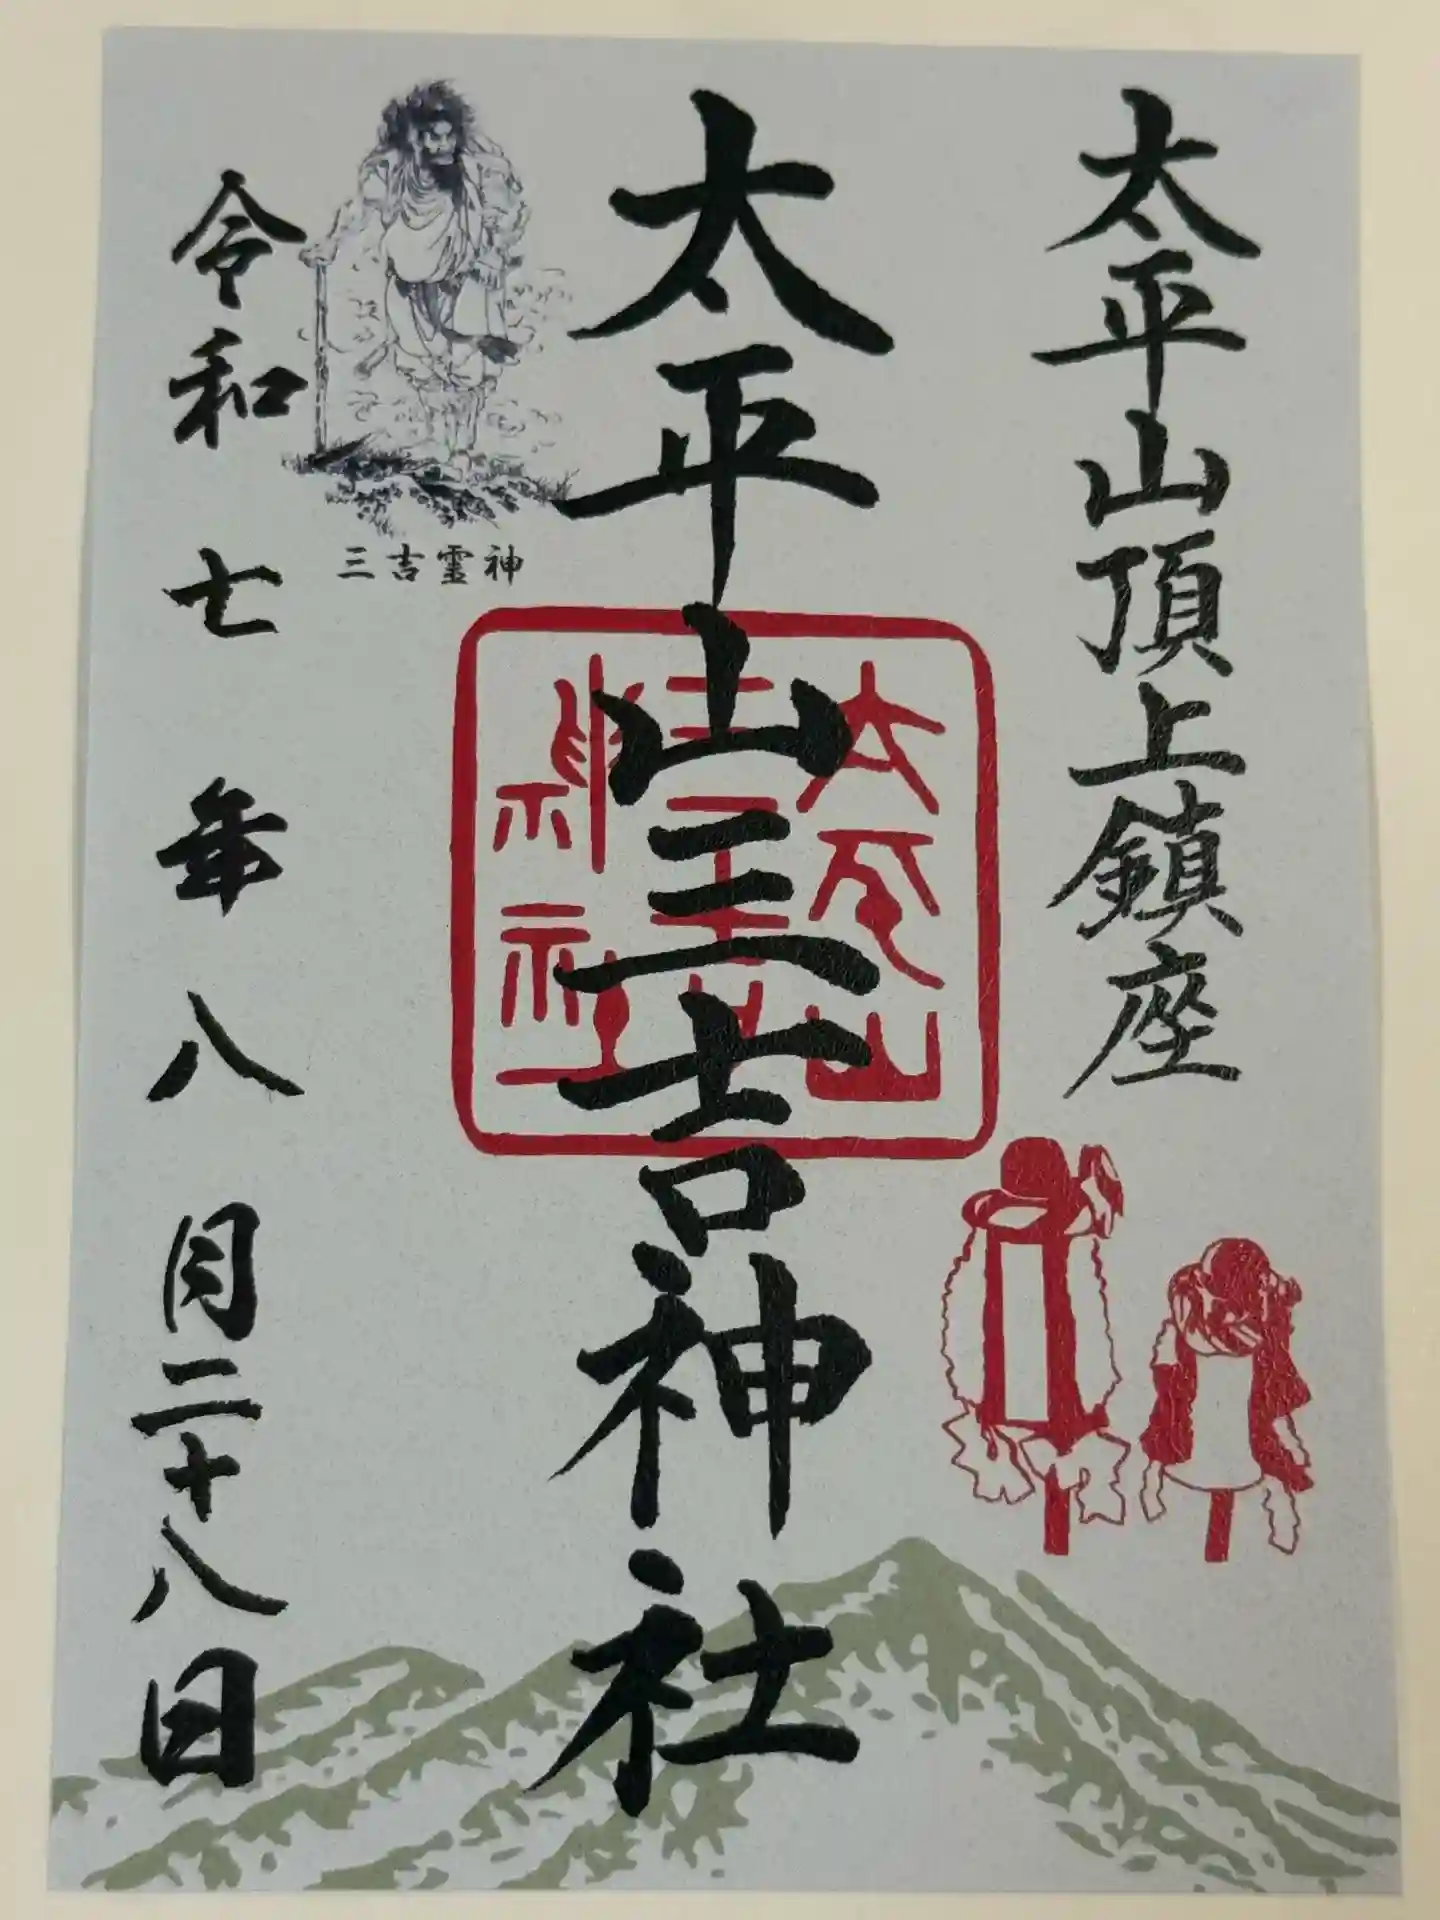 太平山頂上鎮座
太平山三吉神社
太平山
三吉
神社
三吉霊神
令和七年八月二十八日